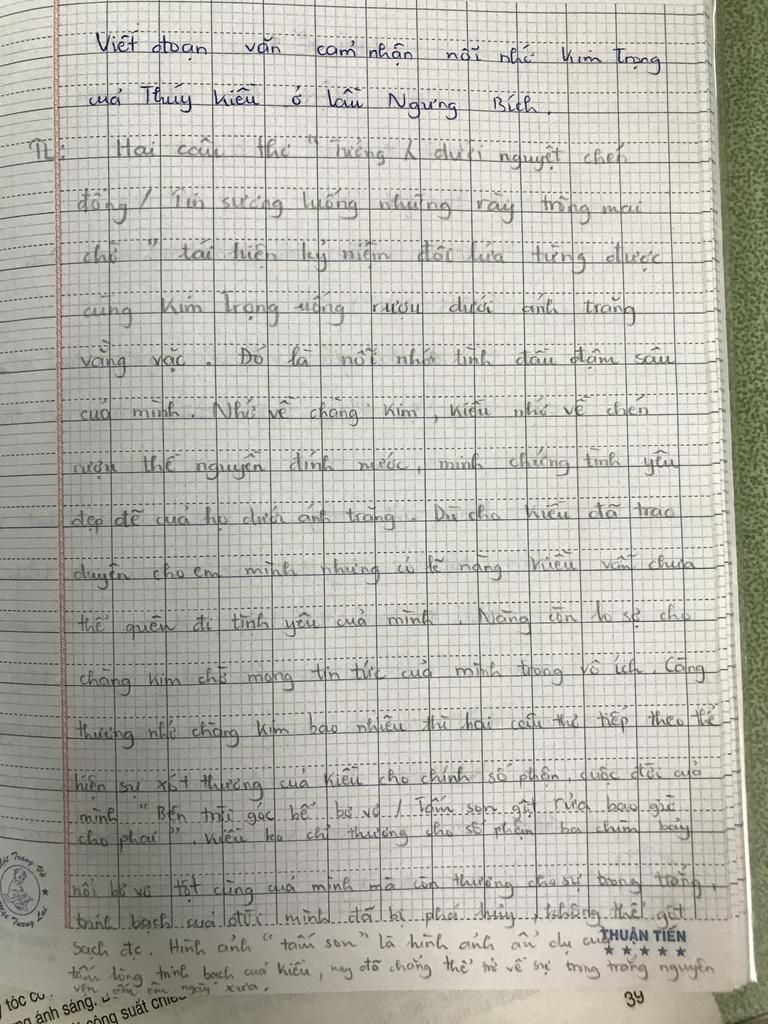 Viết đoạn văn cảm nhận nỗi nhớ Kim Trọng
của Thúy Kiều ở lầu Ngưng Bích.
TL: Hai câu thơ " Tưởng người dưới nguyệt chén
đồng / Tin sương luống những rày trông mai
chờ " tái hiện kỷ niệm đôi lứa từng được
cùng Kim Trọng uống rượu dưới ánh trăng
vằng vặc. Đó là nỗi nhớ tình đầu đậm sâu
của mình. Nhớ về chàng Kim, Kiều nhớ về chén
rượu thề nguyền đính ước, minh chứng tình yêu
đẹp đẽ của họ dưới ánh trăng. Dù cho Kiều đã trao
duyên cho em mình nhưng có lẽ nàng Kiều vẫn chưa
thể quên đi tình yêu của mình. Nàng còn lo sợ cho
chàng Kim chờ mong tin tức của mình trong vô ích. Càng
thương nhớ chàng Kim bao nhiêu thì hai câu thơ tiếp theo thể
hiện sự xót thương của Kiều cho chính số phận, cuộc đời của
mình "Bên trời góc bể bơ vơ / Tấm son gột rửa bao giờ
cho phai". Kiều ko chỉ thương cho số phận ba chìm bảy
nổi bơ vơ tột cùng của mình mà còn thương cho sự trong trắng,
trinh bạch của đời mình đã bị phá hủy, không thể gột
sạch đc. Hình ảnh "tấm son" là hình ảnh ẩn dụ của
tấm lòng trinh bạch của Kiều, nay đã chẳng thể trở về sự trong trắng nguyên
vẹn êm ngày xưa.
THUẬN TIẾN
39
tóc
ánh sáng.
công suất